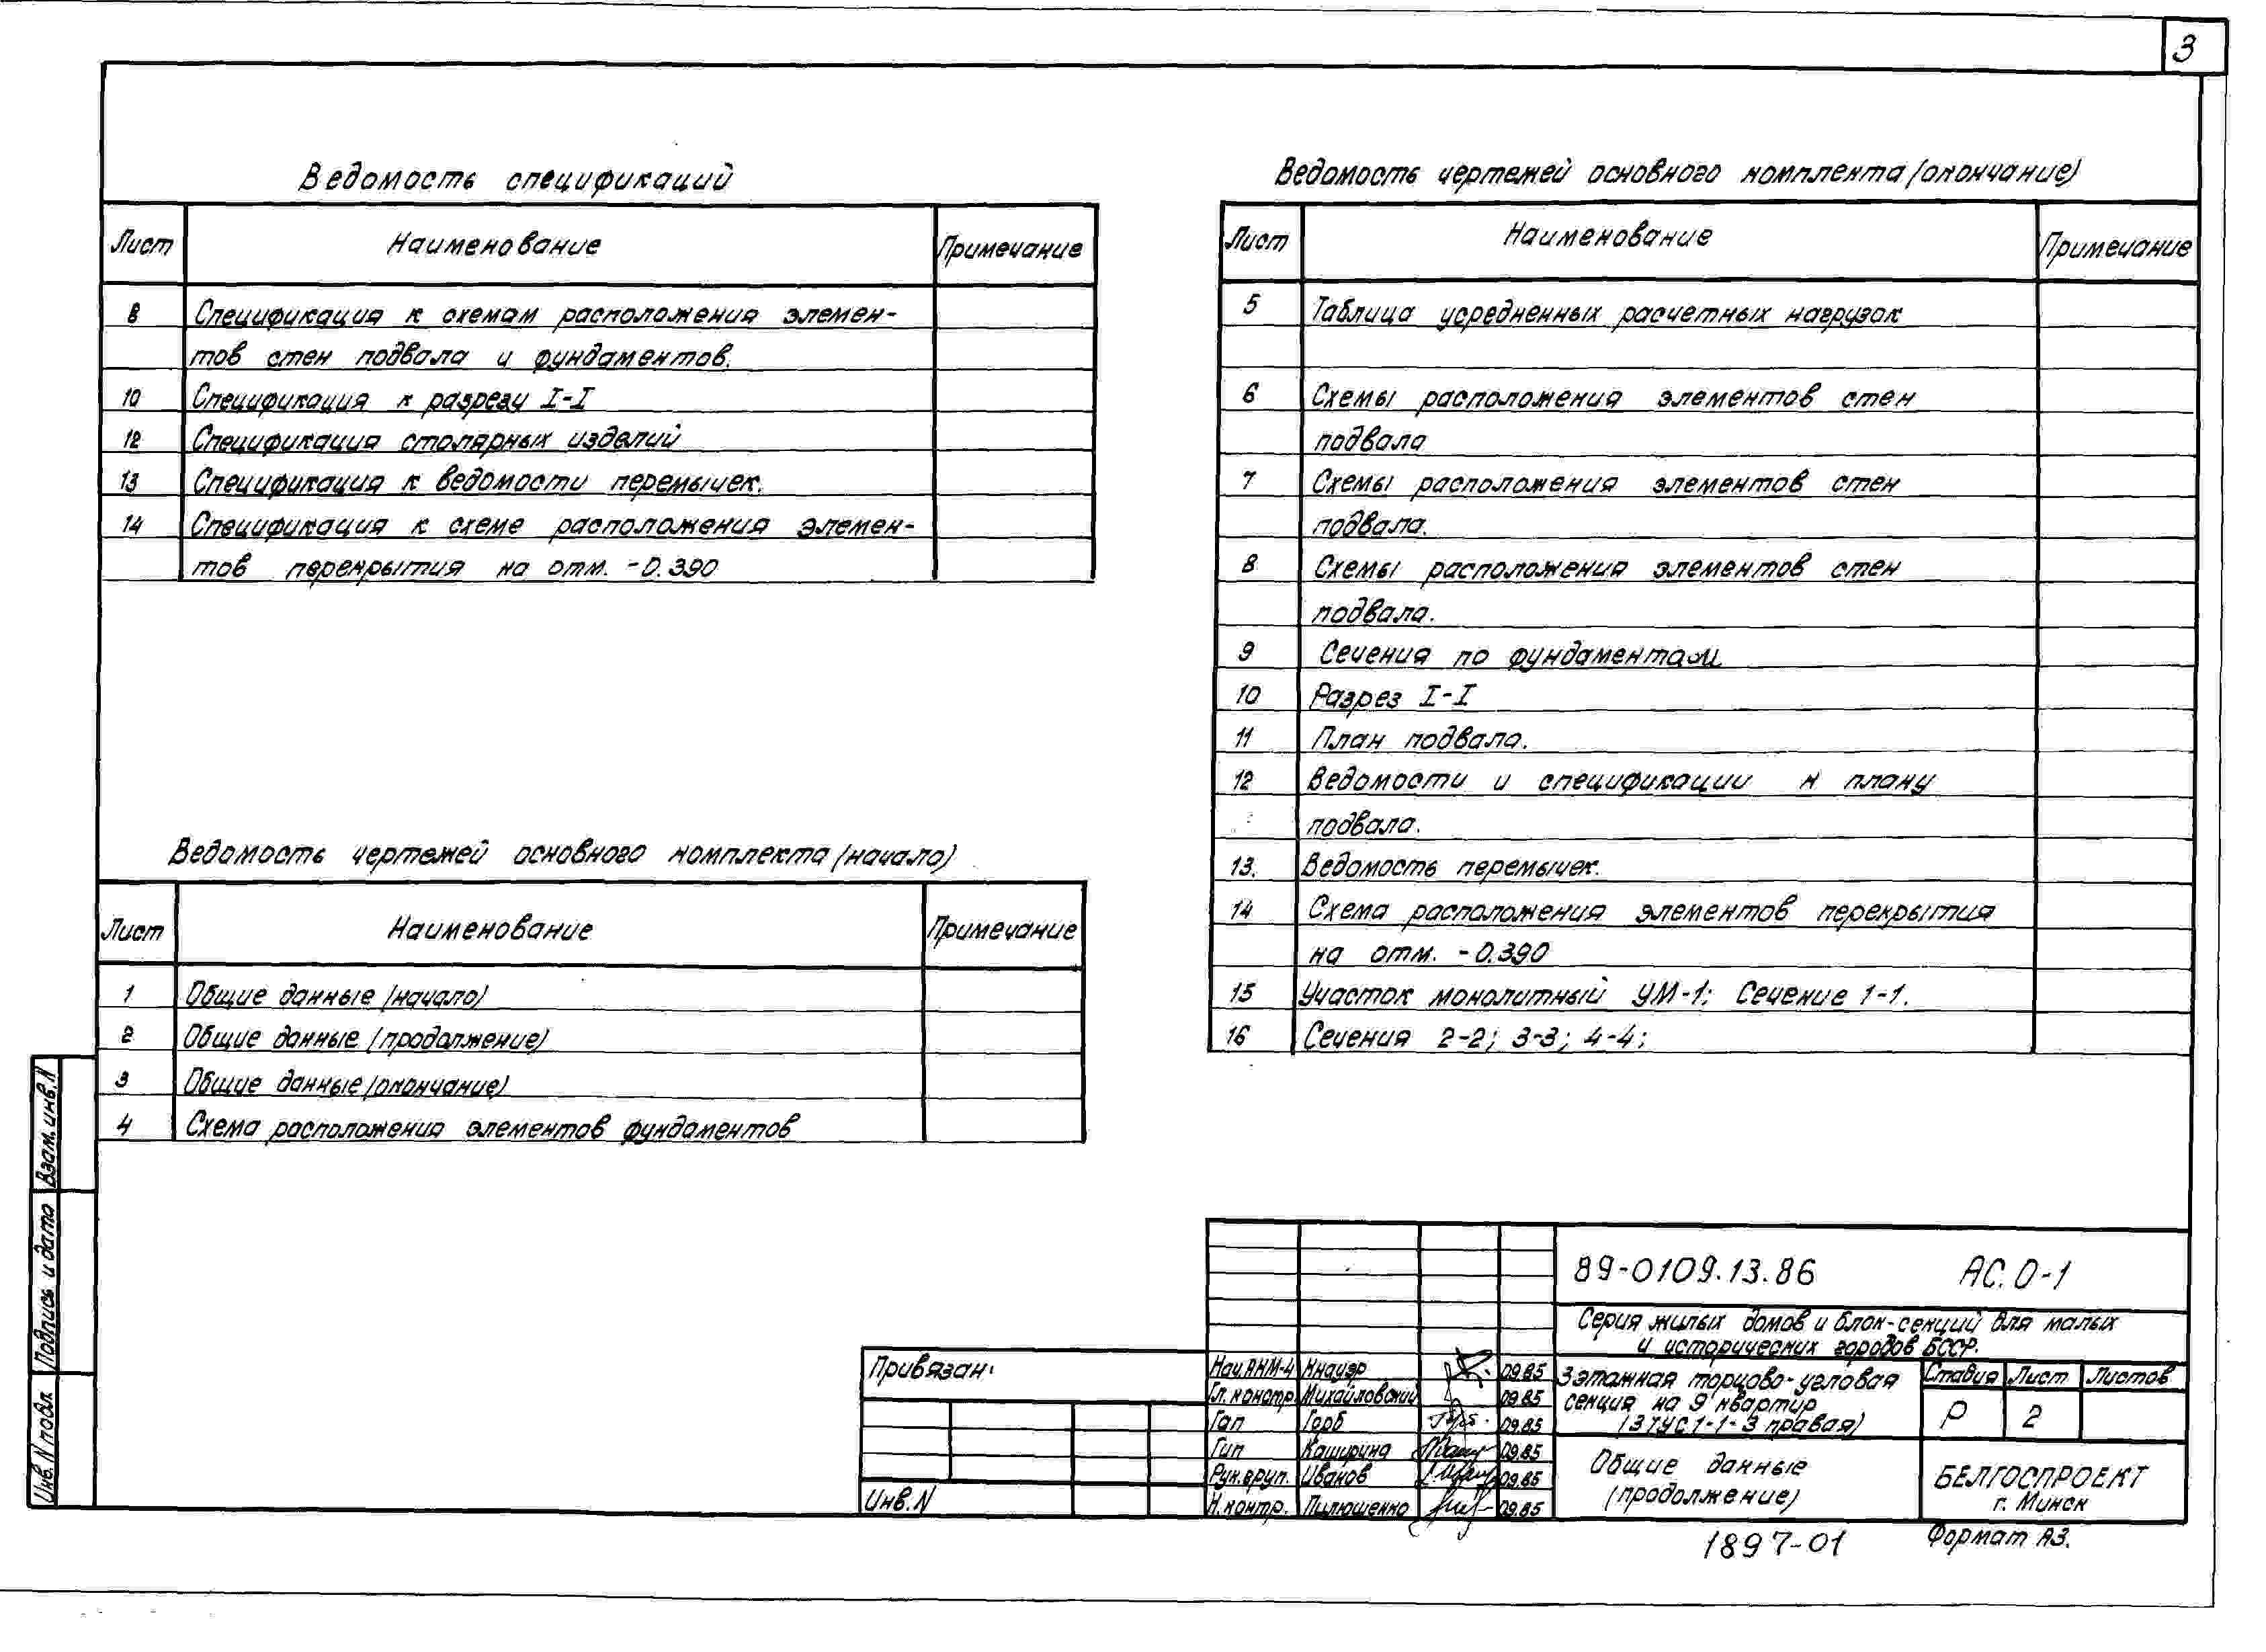 3
Ведомость спецификаций
Лист Наименование Примечание
8 Спецификация к схемам расположения элемен-
тов стен подвала и фундаментов.
10 Спецификация к разрезу I-I
12 Спецификация столярных изделий
13 Спецификация к ведомости перемычек.
14 Спецификация к схеме расположения элемен-
тов перекрытия на отм. -0.390
Ведомость чертежей основного комплекта (начало)
Лист Наименование Примечание
1 Общие данные (начало)
2 Общие данные (продолжение)
3 Общие данные (окончание)
4 Схема расположения элементов фундаментов
Ведомость чертежей основного комплекта (окончание)
Лист Наименование Примечание
5 Таблица усредненных расчетных нагрузок
6 Схемы расположения элементов стен
подвала
7 Схемы расположения элементов стен
подвала.
8 Схемы расположения элементов стен
подвала.
9 Сечения по фундаментам
10 Разрез I-I
11 План подвала.
12 Ведомости и спецификации к плану
подвала.
13. Ведомость перемычек.
14 Схема расположения элементов перекрытия
на отм. -0.390
15 Участок монолитный УМ-1; Сечение 1-1.
16 Сечения 2-2; 3-3; 4-4;
Взам. инв. N
Подпись и дата
Инв. N подл
Привязан:
Инв. N
Нач.АКМ-4 Кнауэр 09.85
Гл. констр. Михайловский 09.85
Гап Горб 09.85
Гип Каширина 09.85
Рук. груп. Иванов 09.85
Н. контр. Пилюшенко 09.85
89-0109.13.86 АС.0-1
Серия жилых домов и блок-секций для малых
и исторических городов БССР.
3этажная торцово-угловая
секция на 9 квартир
(3ТУС1-1-3 правая)
Стадия Лист Листов
Р 2
Общие данные
(продолжение)
БЕЛГОСПРОЕКТ
г. Минск
1897-01
Формат А3.